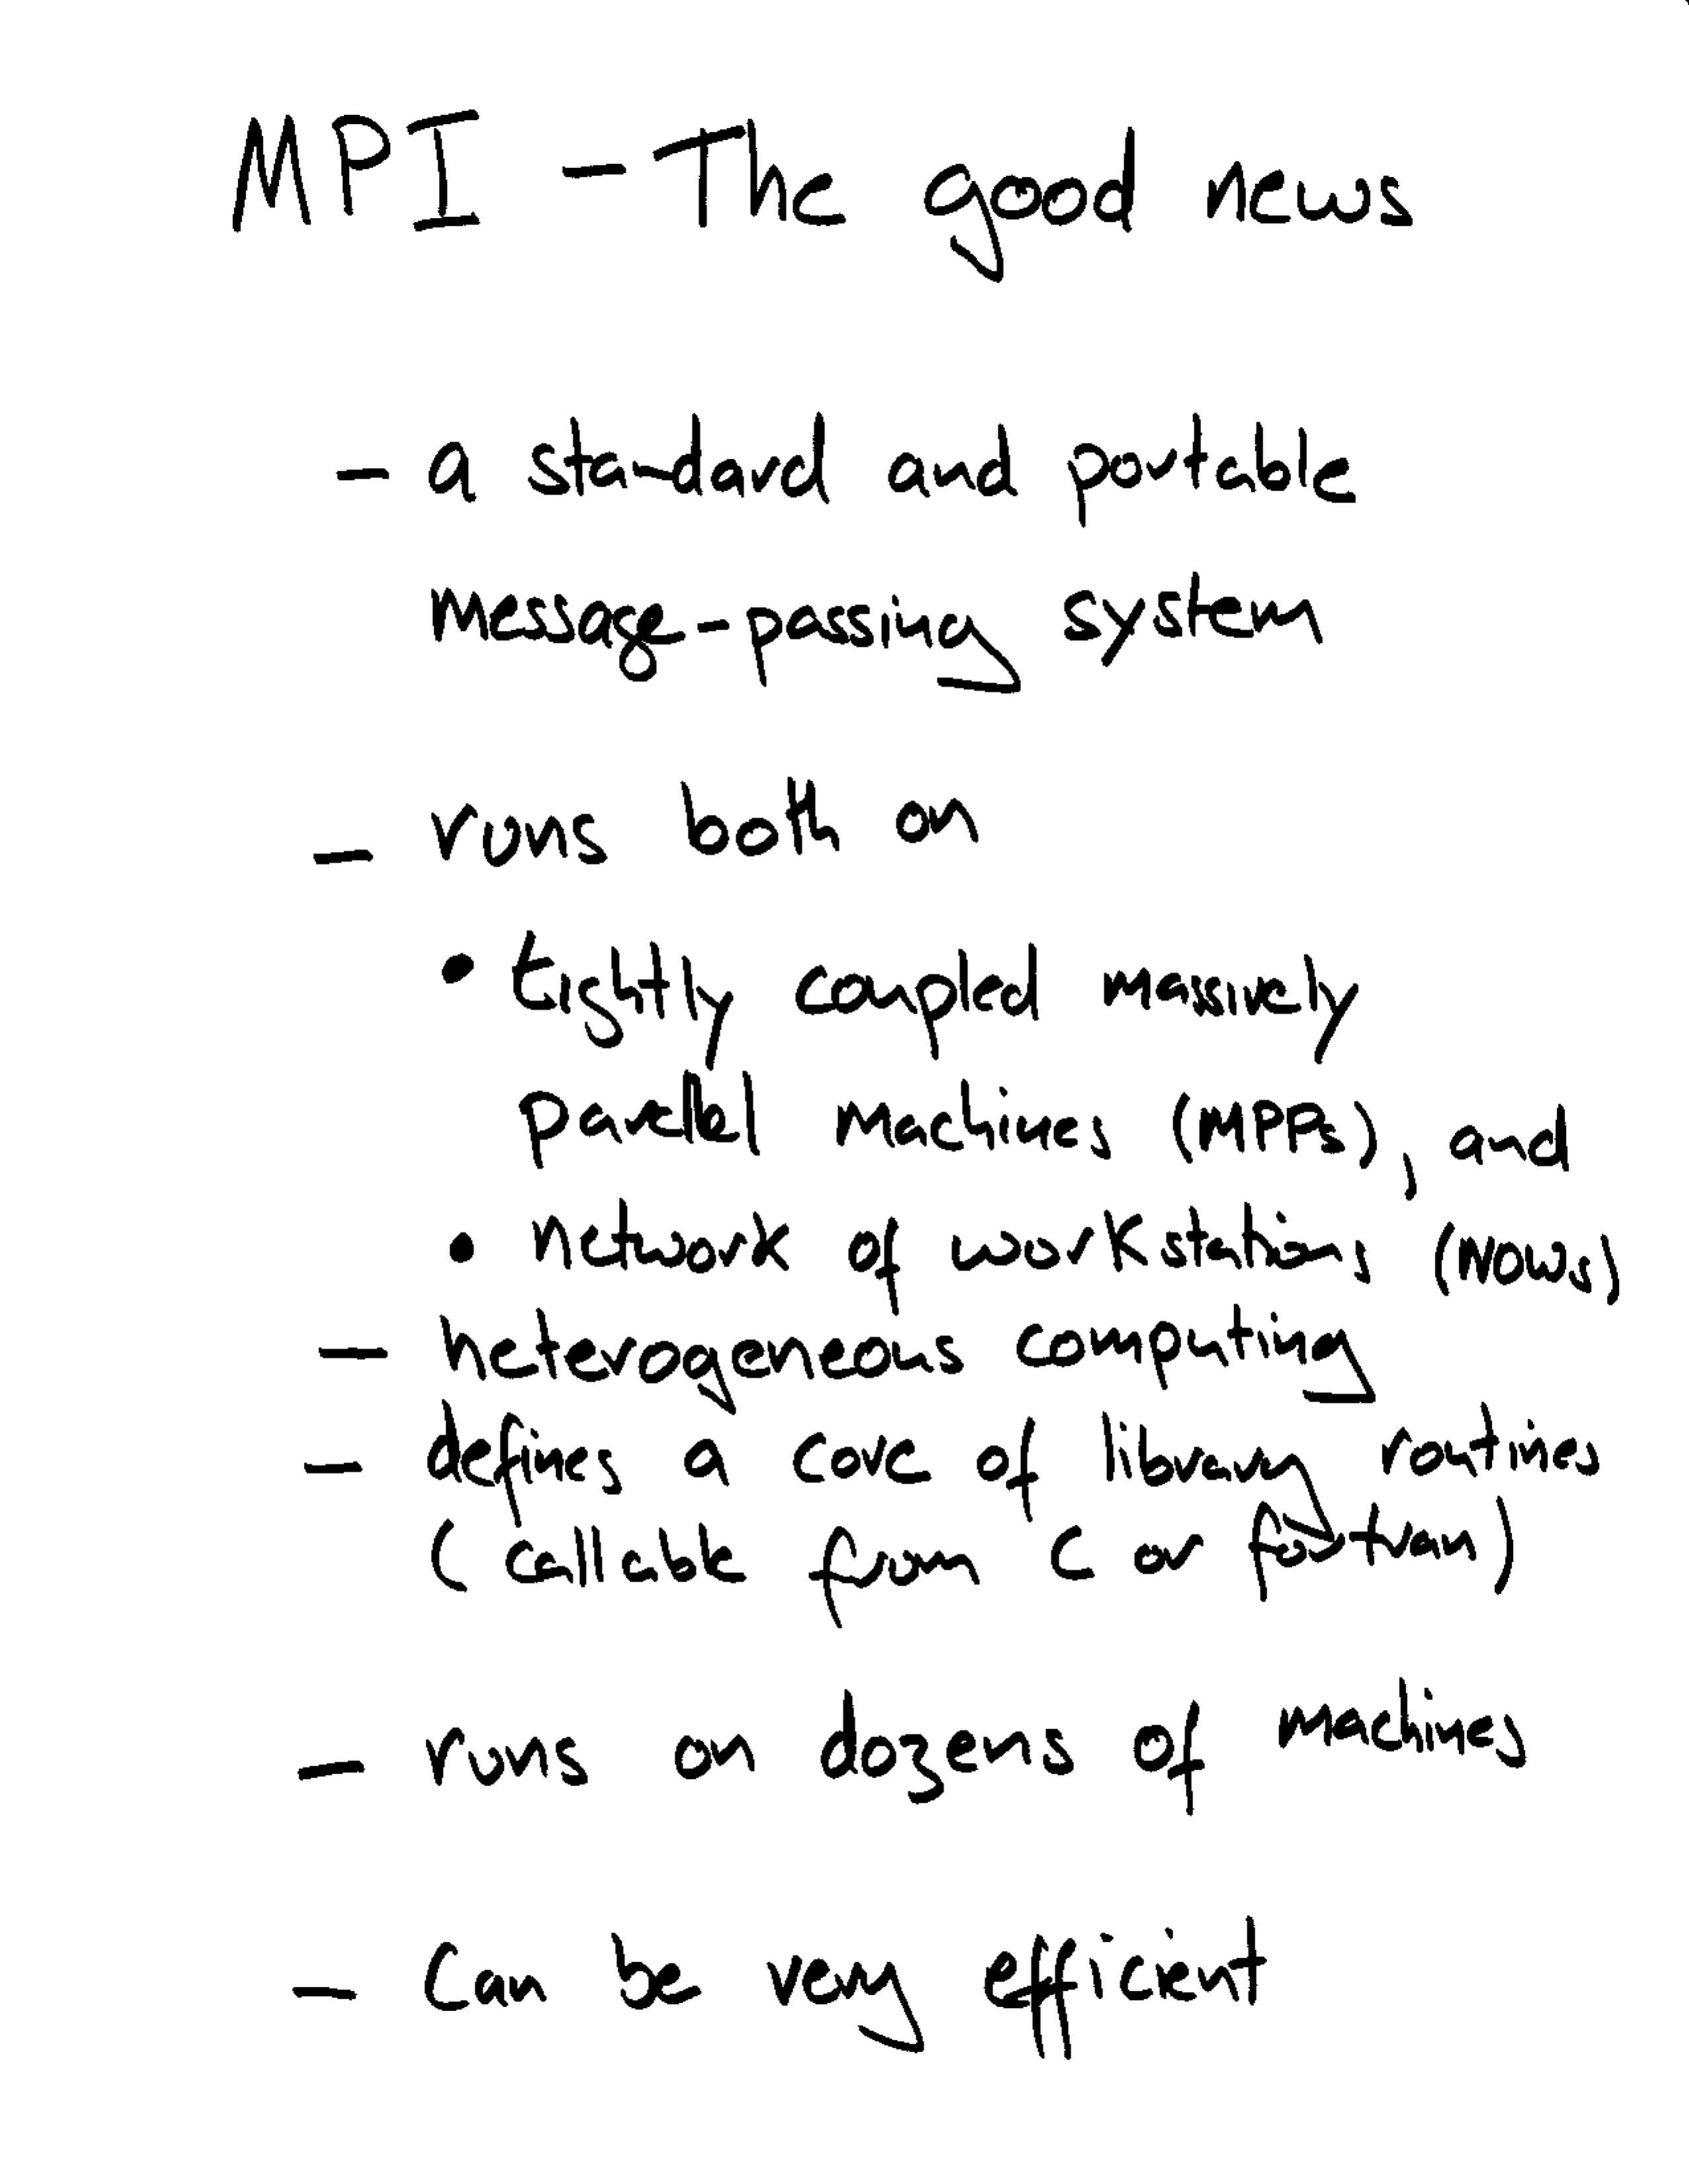 MPI - The good news
- a standard and portable
message-passing system
- runs both on
• tightly coupled massively
parallel machines (MPPs), and
• network of workstations (NOWs)
- heterogeneous computing
- defines a core of library routines
(callable from C or fortran)
- runs on dozens of machines
- Can be very efficient